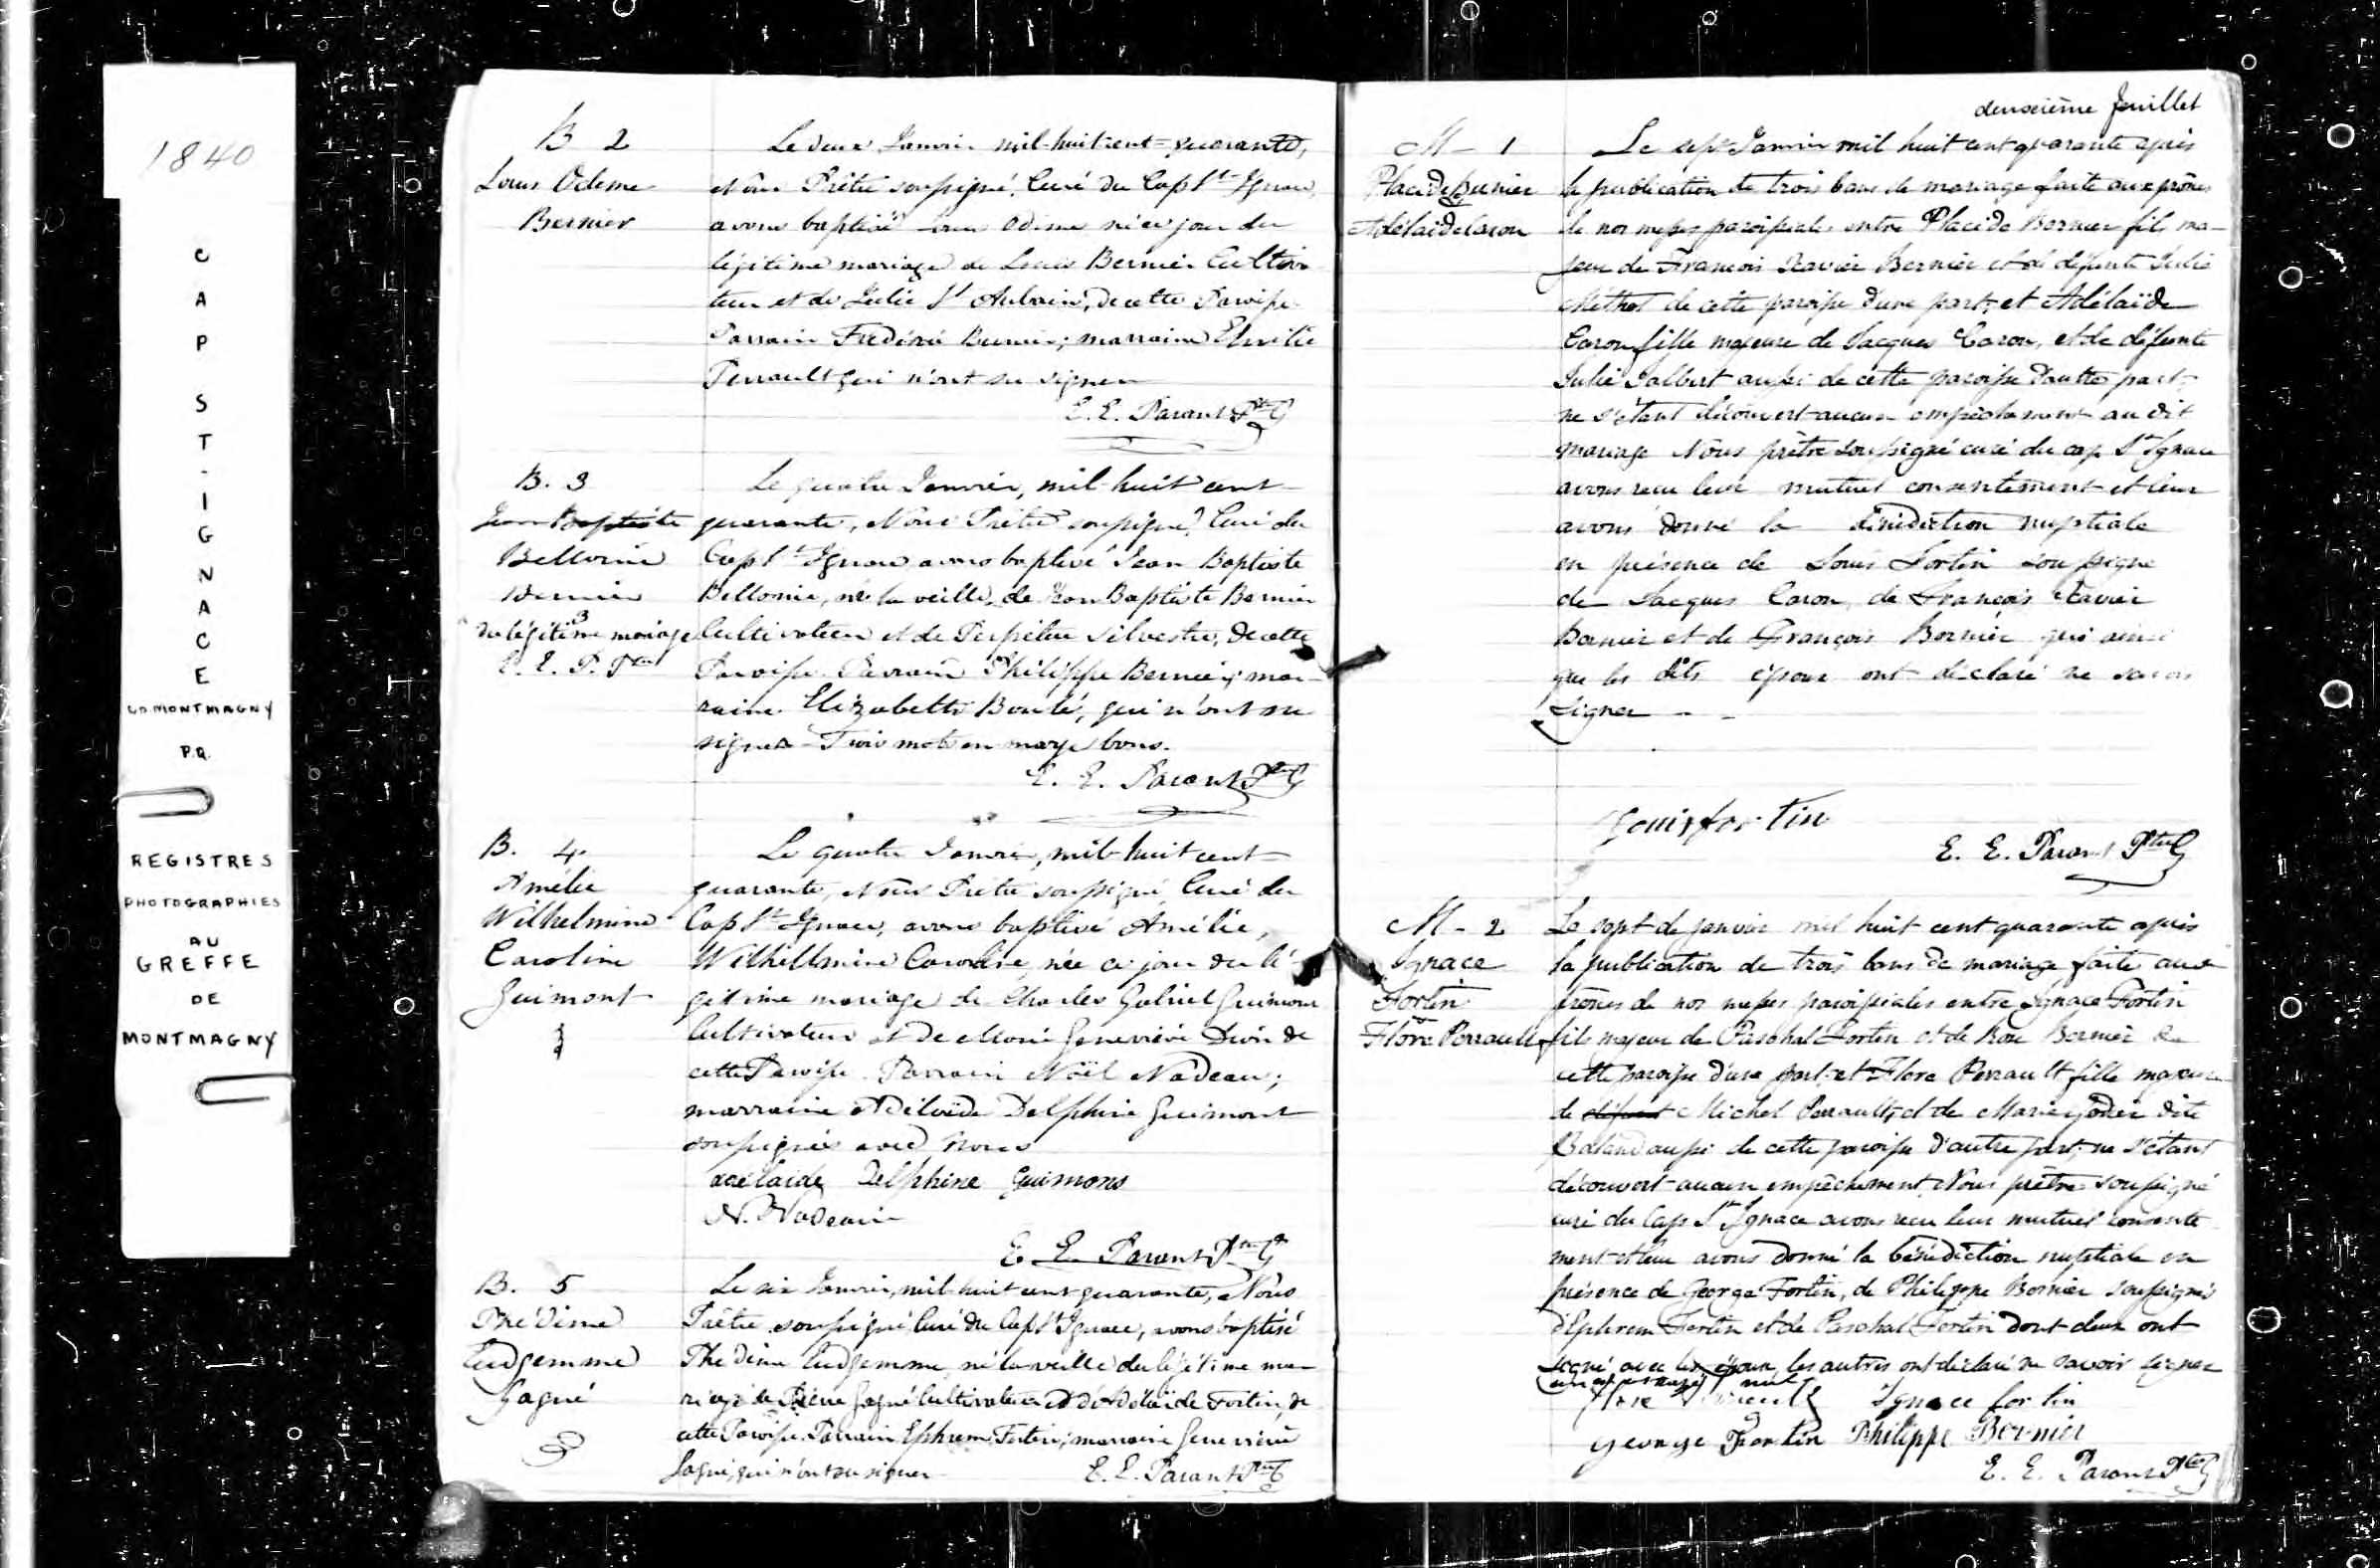 1840
C
A
P
S
T
-
I
G
N
A
C
E
CO MONTMAGNY
P.Q.
REGISTRES
PHOTOGRAPHIES
AU
GREFFE
DE
MONTMAGNY
B 2
Louis Odime
Bernier
Le deux Janvier mil-huit cent-quarante,
Nous Prêtre soussigné, Curé du Cap St Ignace,
avons baptisé Louis Odime né ce jour du
légitime mariage de Louis Bernier Cultiva
teur et de Julie St Aubain, de cette Paroisse
Parrain Frédéric Bernier; marraine Emilie
Perrault qui n'ont su signer
E. E. Parant Ptre
B. 3
Jean Baptiste
Bellonie
Bernier
du légitime mariage
E. E. P. Ptre
Le quatre Janvier, mil-huit cent
quarante, Nous Prêtre soussigné, Curé du
Cap St Ignace avons baptisé Jean Baptiste
Bellonie, né la veille, de Jean Baptiste Bernier
Cultivateur et de Perpétue Silvestre, de cette
Paroisse. Parrain Philippe Bernier; mar-
raine Elizabeth Boulé, qui n'ont su
signer. Trois mots en marge bons.
E. E. Parant Ptre
B. 4.
Amélie
Wilhelmine
Caroline
Guimont
Le quatre Janvier, mil-huit cent
quarante, Nous Prêtre soussigné Curé du
Cap St Ignace, avons baptisé Amélie,
Wilhellmine Caroline, née ce jour du lé
gitime mariage de Charles Gabriel Guimont
Cultivateur et de Marie Geneviève Dion de
cette Paroisse. Parrain Noël Nadeau;
marraine Adélaïde Delphine Guimont
soussignés avec Nous
adelaide Delphine Guimons
N. Nadeau
E. E. Parant Ptre
B. 5
Thédime
Ludgemme
Gagné
Le six Janvier, mil-huit cent quarante, Nous
Prêtre soussigné Curé du Cap St Ignace, avons baptisé
Thédime Ludgemme, né la veille du légitime ma
riage de Pierre Gagné Cultivateur et d'Adélaïde Fortin, de
cette Paroisse. Parrain Ephrem Fortin; marraine Geneviève
Gagné, qui n'ont su signer
E. E. Parant Ptre
deuxième feuillet
M - 1
Placide Bernier
Adélaïde Caron
Le sept Janvier mil huit cent quarante après
la publication de trois bans de mariage faite aux prônes
de nos messes paroissiales entre Placide Bernier fils ma-
jeur de François Xavier Bernier et de défunte Julie
Méthot de cette paroisse d'une part; et Adélaïde
Caron fille majeure de Jacques Caron, et de défunte
Julie Jalbert aussi de cette paroisse d'autre part
ne s'étant découvert aucun empêchement au dit
mariage Nous prêtre soussigné curé du cap St Ignace
avons recu leur mutuel consentement et leur
avons donné la bénédiction nuptiale
en présence de Louis Fortin soussigné
de Jacques Caron, de François Xavier
Bernier et de François Bernier qui ainsi
que les dits époux ont déclaré ne savoir
signer - -
Louis fortin
E. E. Parant Ptre
M - 2
Ignace
Fortin
Flore Perrault
Le sept de janvier mil huit cent quarante après
la publication de trois bans de mariage faite aux
prônes de nos messes paroissiales entre Ignace Fortin
fils majeur de Paschal Fortin et de Rose Bernier de
cette paroisse d'une part; et Flore Perrault fille majeure
de défunt Michel Perrault, et de Marie dite
aussi de cette paroisse d'autre part; ne s'étant
découvert aucun empêchement, Nous prêtre soussigné
curé du Cap St Ignace avons recu leur mutuel consente
ment et leur avons donné la bénédiction nuptiale en
présence de George Fortin, de Philippe Bernier soussignés
d'Ephrem Fortin et de Paschal Fortin dont deux ont
signé avec les époux les autres ont déclaré ne savoir signer
Ignace fortin
george Fortin Philippe Bernier
E. E. Parant Ptre